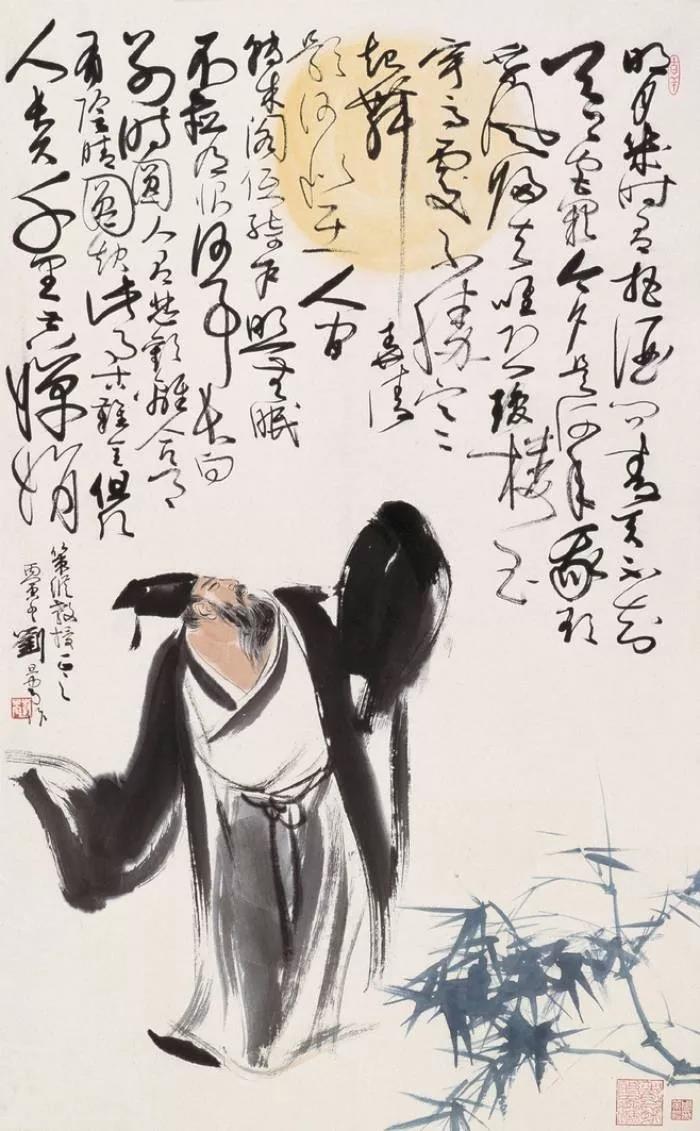 明月幾時有把酒問青天不知
天上宮闕今夕是何年我欲
乘風歸去唯恐瓊樓玉
宇高處不勝寒
起舞弄清
影何似在人間
轉朱閣低綺戶照無眠
不應有恨何事長向
別時圓人有悲歡離合月
有陰晴圓缺此事古難全但願
人長久千里共嬋娟
策縱教授正之
丙寅 劉旦宅作